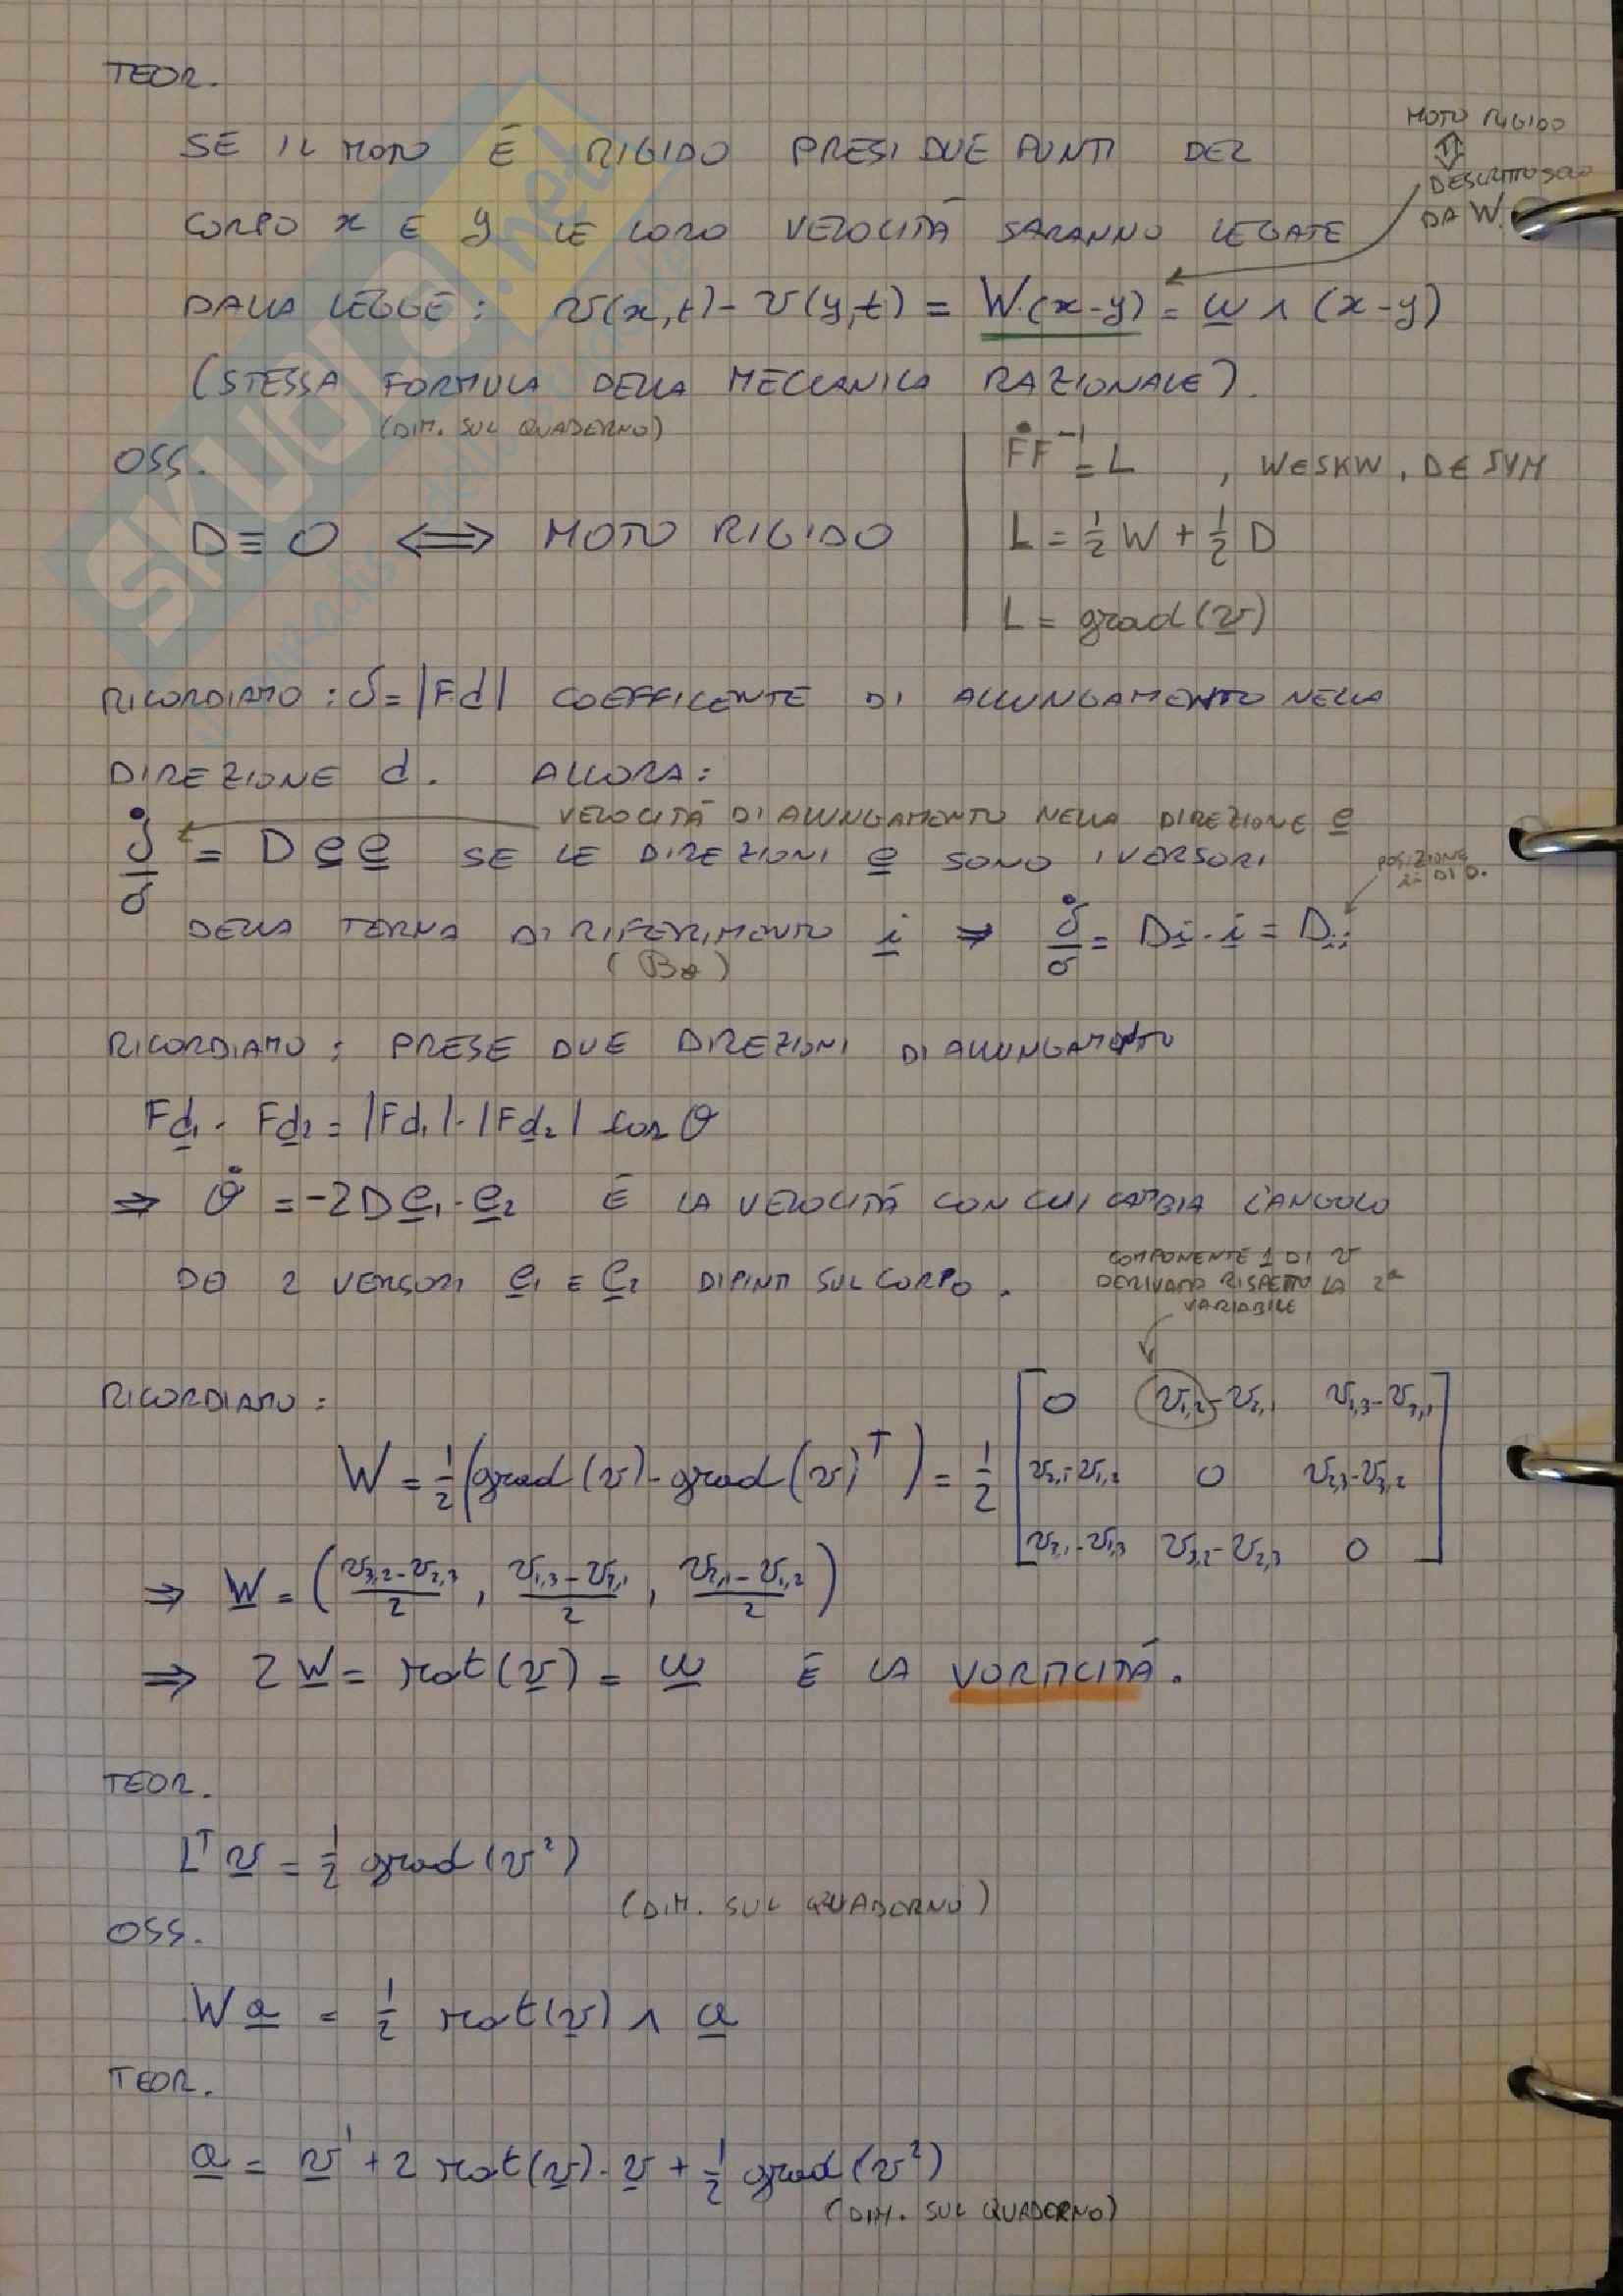 TEOR.
SE IL MOTO È RIGIDO PRESI DUE PUNTI DEL
CORPO x E y LE LORO VELOCITÀ SARANNO LEGATE
DALLA LEGGE: v(x,t) - v(y,t) = W·(x-y) = w ∧ (x-y)
MOTO RIGIDO
⇕
DESCRITTO SOLO
DA W.
(STESSA FORMULA DELLA MECCANICA RAZIONALE).
(DIM. SUL QUADERNO)
OSS.
D ≡ 0 ⟺ MOTO RIGIDO
ḞF⁻¹ = L , W∈SKW, D∈SYM
L = 1/2 W + 1/2 D
L = grad(v)
RICORDIAMO: δ = |Fd| COEFFICENTE DI ALLUNGAMENTO NELLA
DIREZIONE d. ALLORA:
VELOCITÀ DI ALLUNGAMENTO NELLA DIREZIONE e
δ̇/δ = D e e SE LE DIREZIONI e SONO I VERSORI
POSIZIONE
ii DI D.
DELLA TERNA DI RIFERIMENTO i ⇒ δ̇/δ = Di·i = Dii
RICORDIAMO: PRESE DUE DIREZIONI DI ALLUNGAMENTO
Fd₁ · Fd₂ = |Fd₁|·|Fd₂| cos θ
⇒ θ̇ = -2De₁·e₂ È LA VELOCITÀ CON CUI CAMBIA L'ANGOLO
DO 2 VERSORI e₁ E e₂ DIPINTI SUL CORPO.
COMPONENTE 1 DI v
DERIVATA RISPETTO LA 2ª
VARIABILE
RICORDIAMO:
W = 1/2 (grad(v) - grad(v)ᵀ) = 1/2 [ 0 v1,2-v2,1 v1,3-v3,1
v2,1-v1,2 0 v2,3-v3,2
v3,1-v1,3 v3,2-v2,3 0 ]
⇒ W = ( (v3,2-v2,3)/2 , (v1,3-v3,1)/2 , (v2,1-v1,2)/2 )
⇒ 2W = rot(v) = w È LA VORTICITÀ.
TEOR.
Lᵀv = 1/2 grad(v²)
(DIM. SUL QUADERNO)
OSS.
Wa = 1/2 rot(v) ∧ a
TEOR.
a = v' + 2 rot(v)·v + 1/2 grad(v²)
(DIM. SUL QUADERNO)
SKUOLA.net